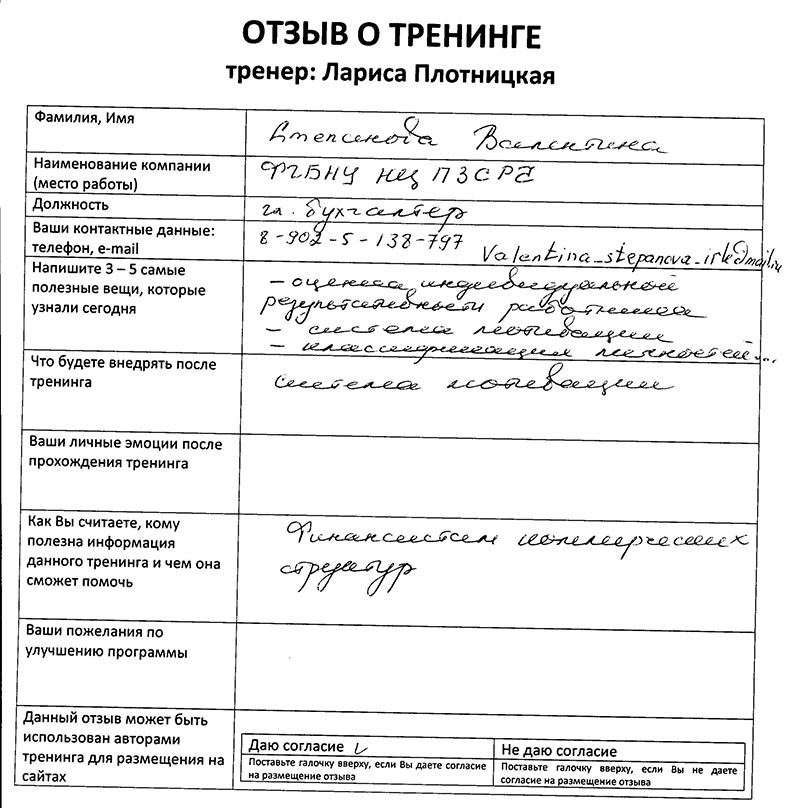 ОТЗЫВ О ТРЕНИНГЕ
тренер: Лариса Плотницкая
Фамилия, Имя
Степанова Валентина
Наименование компании
(место работы)
ФГБНУ НЦ ПЗСРЧ
Должность
гл. бухгалтер
Ваши контактные данные:
телефон, e-mail
8-902-5-138-797 Valentina_stepanova_irk@mail.ru
Напишите 3 – 5 самые
полезные вещи, которые
узнали сегодня
- оценка индивидуальной
результативности работника
- система мотивации
- классификация личностей...
Что будете внедрять после
тренинга
система мотивации
Ваши личные эмоции после
прохождения тренинга
Как Вы считаете, кому
полезна информация
данного тренинга и чем она
сможет помочь
Финансистам коммерческих
структур
Ваши пожелания по
улучшению программы
Данный отзыв может быть
использован авторами
тренинга для размещения на
сайтах
Даю согласие
Поставьте галочку вверху, если Вы даете согласие
на размещение отзыва
Не даю согласие
Поставьте галочку вверху, если Вы не даете
согласие на размещение отзыва